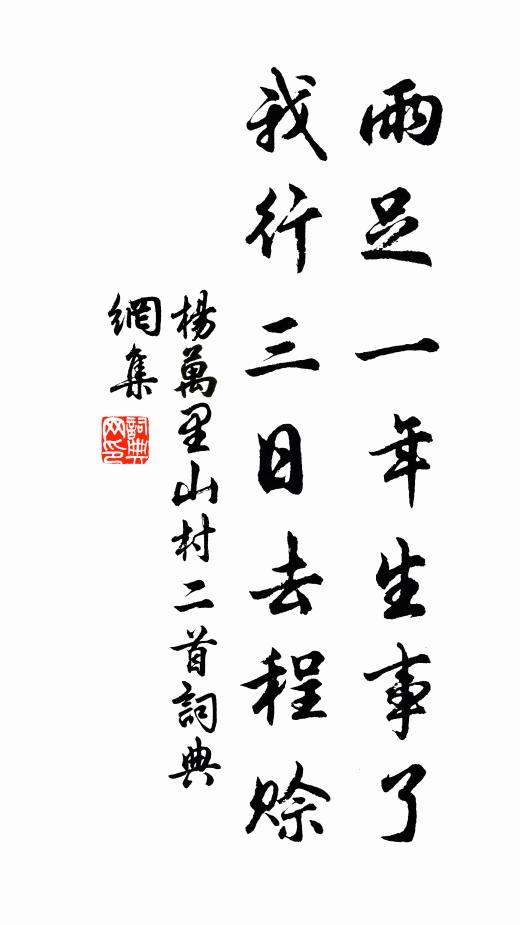 雨足一年生事了
我行三日去程赊
楊萬里山村二首詞典
網集
詞典
网印